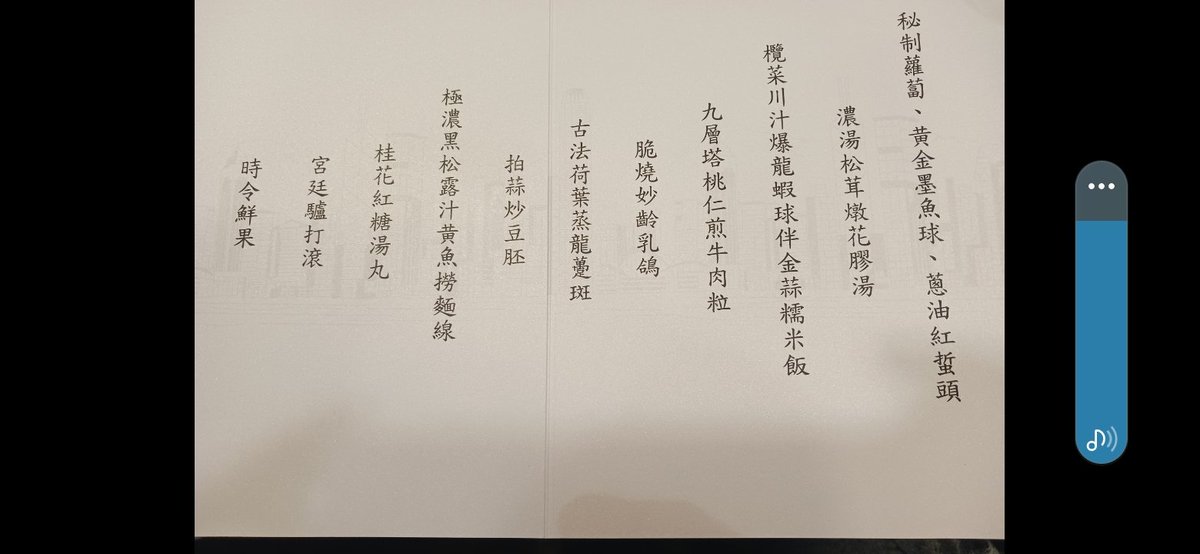 秘制蘿蔔、黄金墨魚球、蔥油紅蜇頭
濃湯松茸燉花膠湯
欖菜川汁爆龍蝦球伴金蒜糯米飯
九層塔桃仁煎牛肉粒
脆燒妙齡乳鴿
古法荷葉蒸龍躉斑
拍蒜炒豆胚
極濃黑松露汁黄魚撈麵線
桂花紅糖湯丸
宮廷驢打滾
時令鮮果